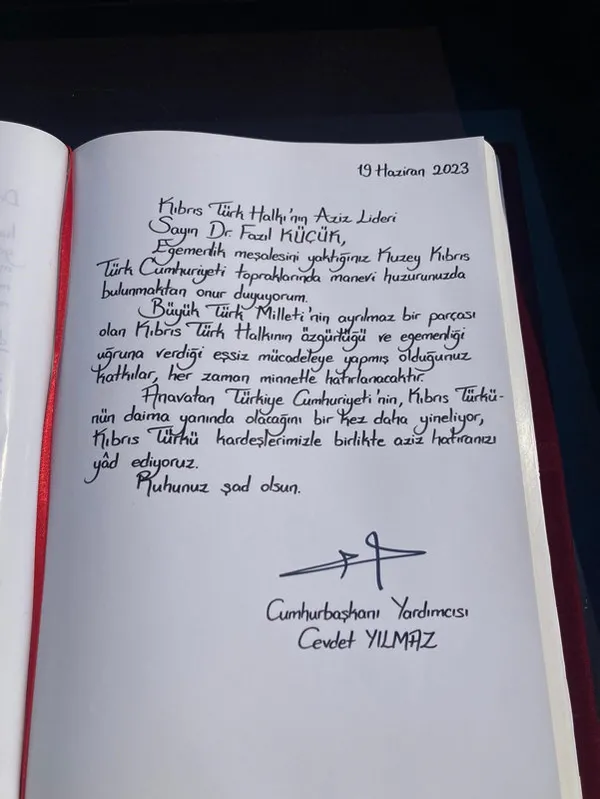 19 Haziran 2023
Kıbrıs Türk Halkı'nın Aziz Lideri
Sayın Dr. Fazıl KÜÇÜK,
Egemenlik meşalesini yaktığınız Kuzey Kıbrıs
Türk Cumhuriyeti topraklarında manevi huzurunuzda
bulunmaktan onur duyuyorum.
Büyük Türk Milleti'nin ayrılmaz bir parçası
olan Kıbrıs Türk Halkının özgürlüğü ve egemenliği
uğruna verdiği eşsiz mücadeleye yapmış olduğunuz
katkılar, her zaman minnetle hatırlanacaktır.
Anavatan Türkiye Cumhuriyeti'nin, Kıbrıs Türkü-
nün daima yanında olacağını bir kez daha yineliyor,
Kıbrıs Türkü kardeşlerimizle birlikte aziz hatıranızı
yâd ediyoruz.
Ruhunuz şad olsun.
Cumhurbaşkanı Yardımcısı
Cevdet YILMAZ